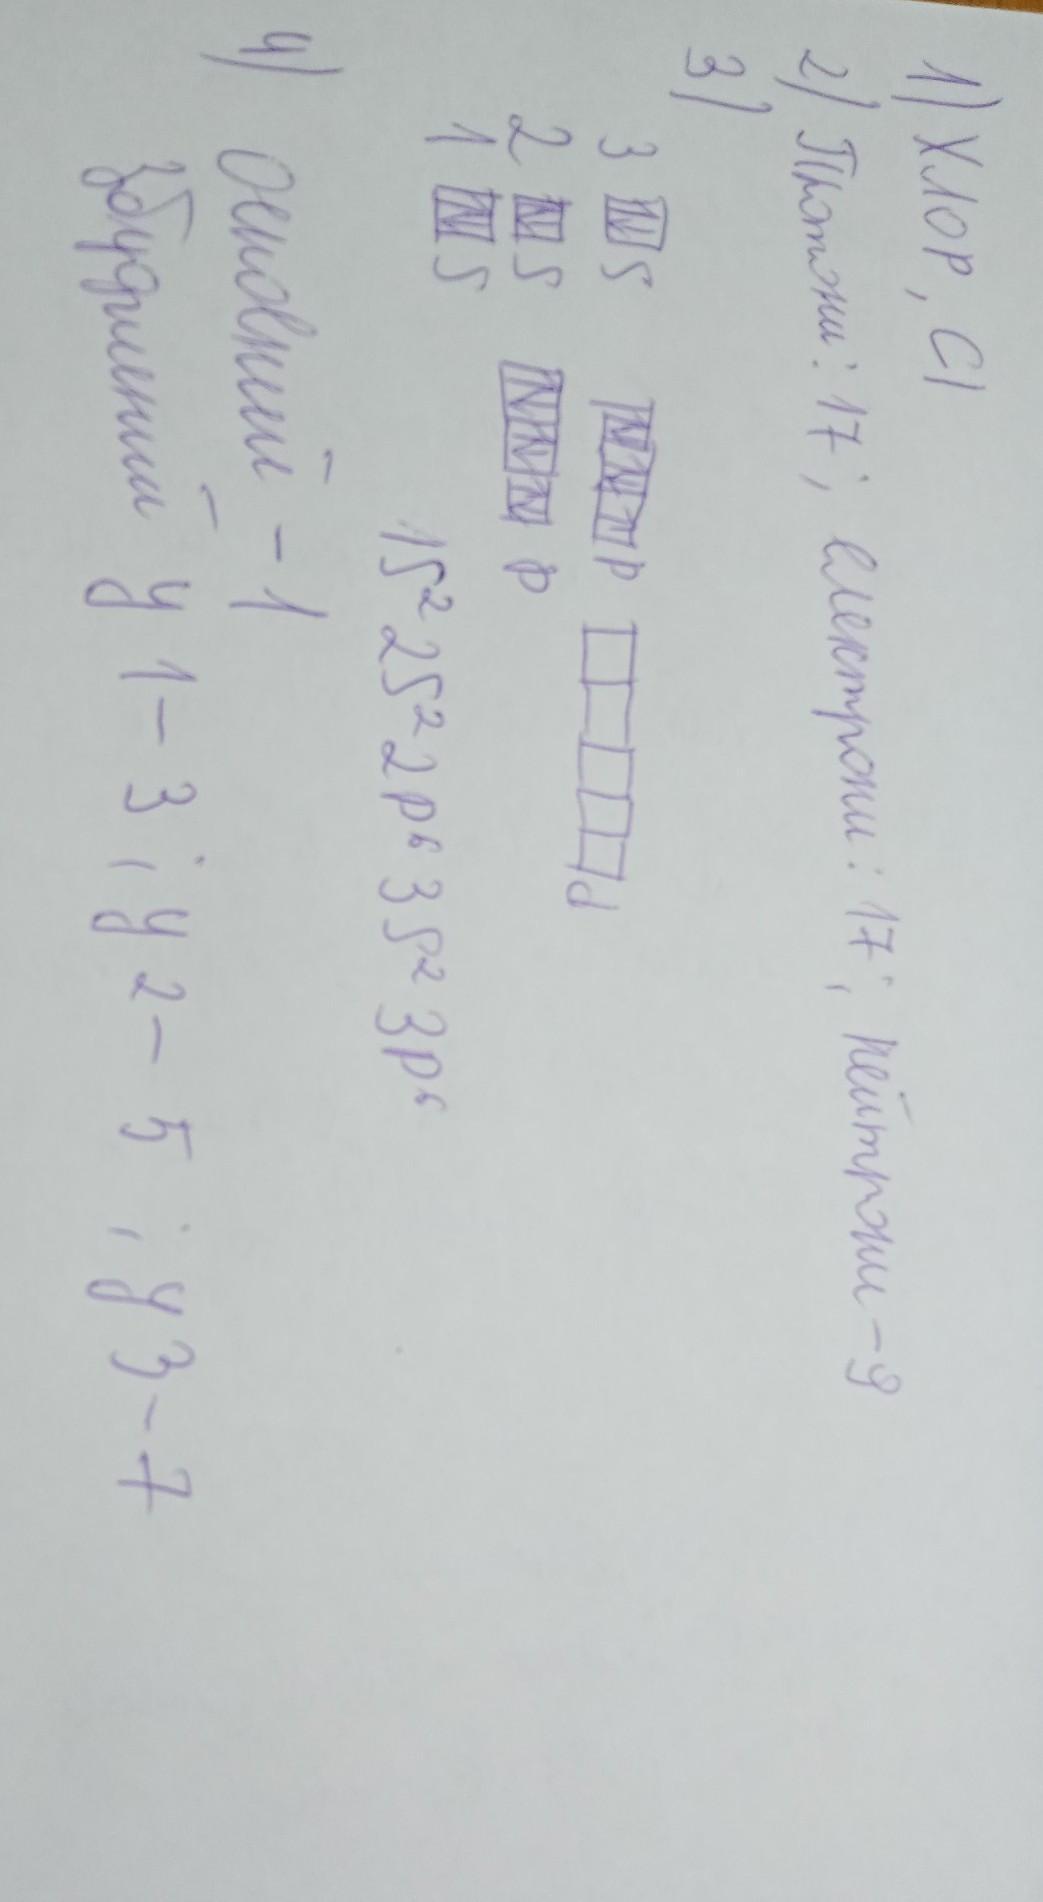 1) Хлор, Cl
2) Протони: 17; електрони: 17; нейтрони - 9
3)
3 s p d
2 s p
1 s
1s² 2s² 2p⁶ 3s² 3p⁶
4) Основний - 1
Збуджений у 1 - 3; у 2 - 5; у 3 - 7